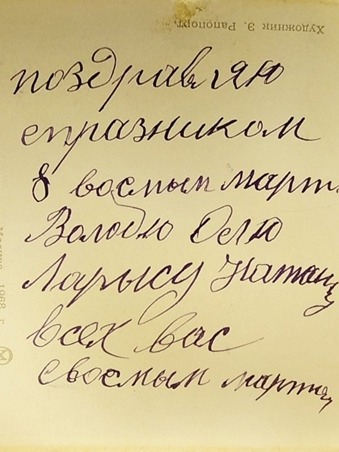 Художник Э. Рапопорт
поздравляю
спразником
8 восмым март
Володю Олю
Ларысу Наташу
всех вас
свосмым марта